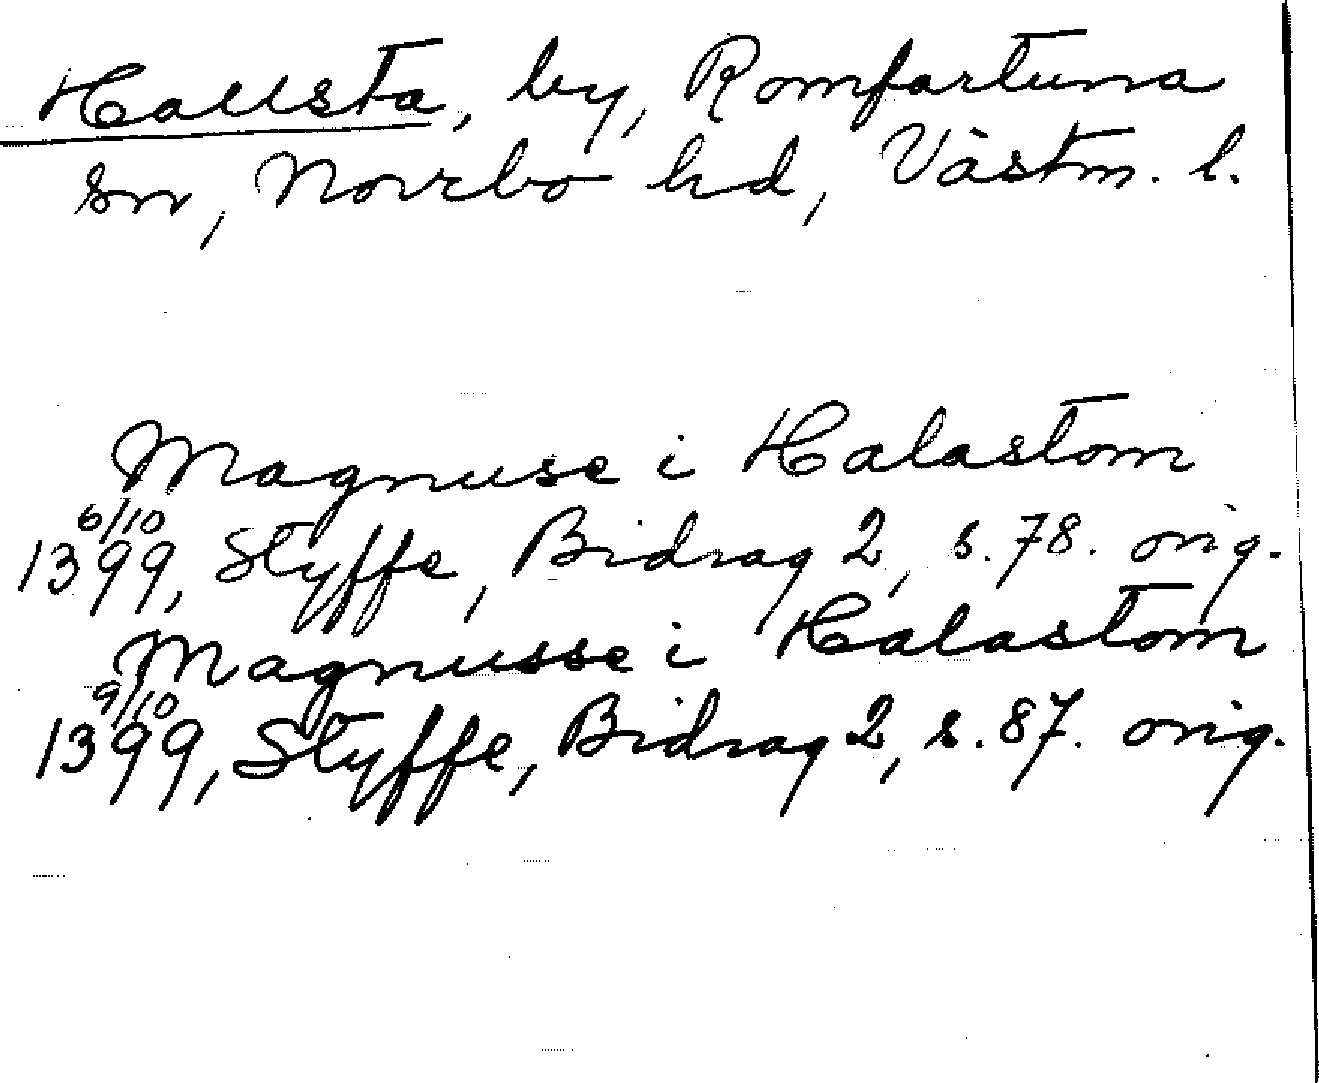 Hallsta, by, Romfartuna
sn, Norrbo hd, Västm. l.
Magnuse i Halastom
6/10
1399, Styffe, Bidrag 2, s. 78. orig.
Magnusse i Halastom
9/10
1399, Styffe, Bidrag 2, s. 87. orig.